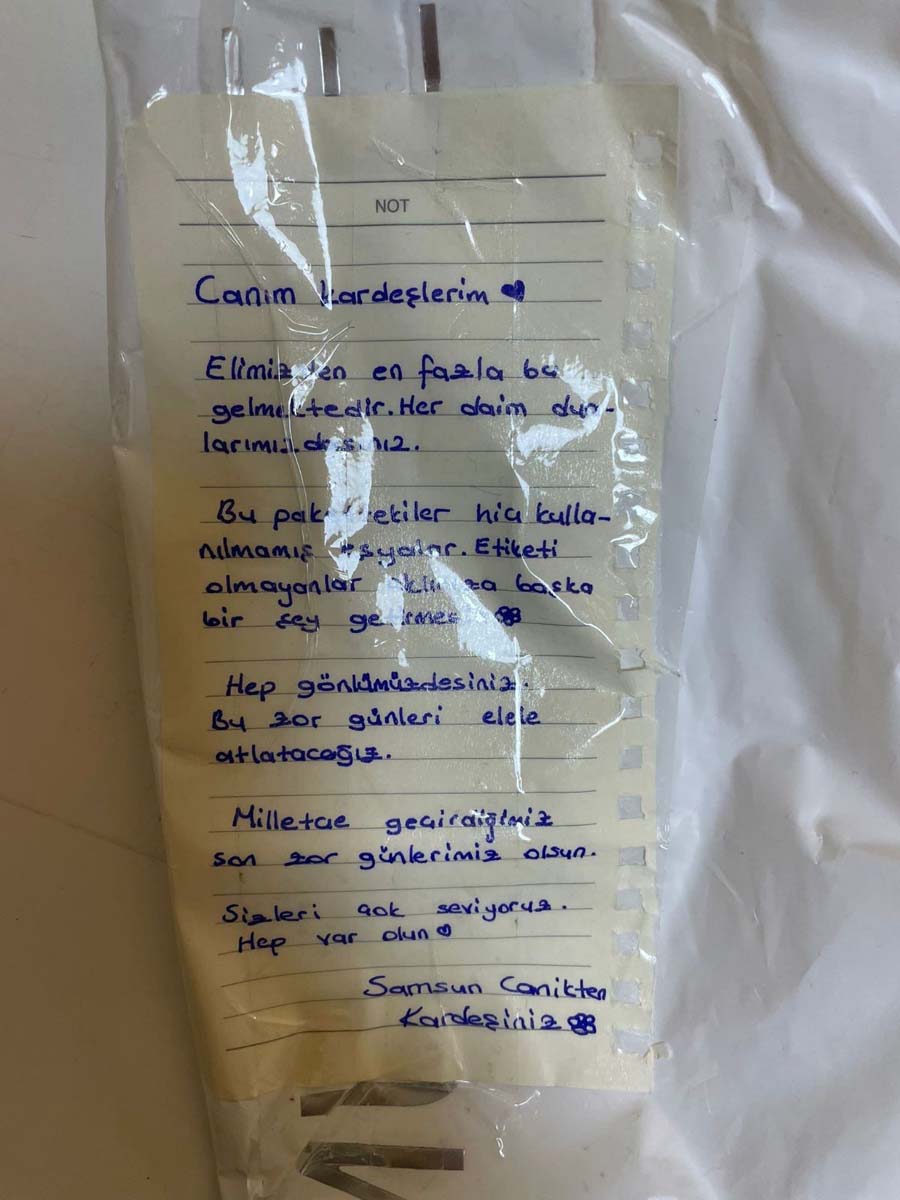 NOT
Canım kardeşlerim
Elimizden en fazla bu
gelmektedir. Her daim dua-
larımızdasınız.
Bu pakettekiler hiç kulla-
nılmamış eşyalar. Etiketi
olmayanlar aklınıza başka
bir şey getirmesin
Hep gönlümüzdesiniz.
Bu zor günleri elele
atlatacağız.
Milletçe geçirdiğimiz
son zor günlerimiz olsun.
Sizleri çok seviyoruz.
Hep var olun
Samsun Canikten
Kardeşiniz